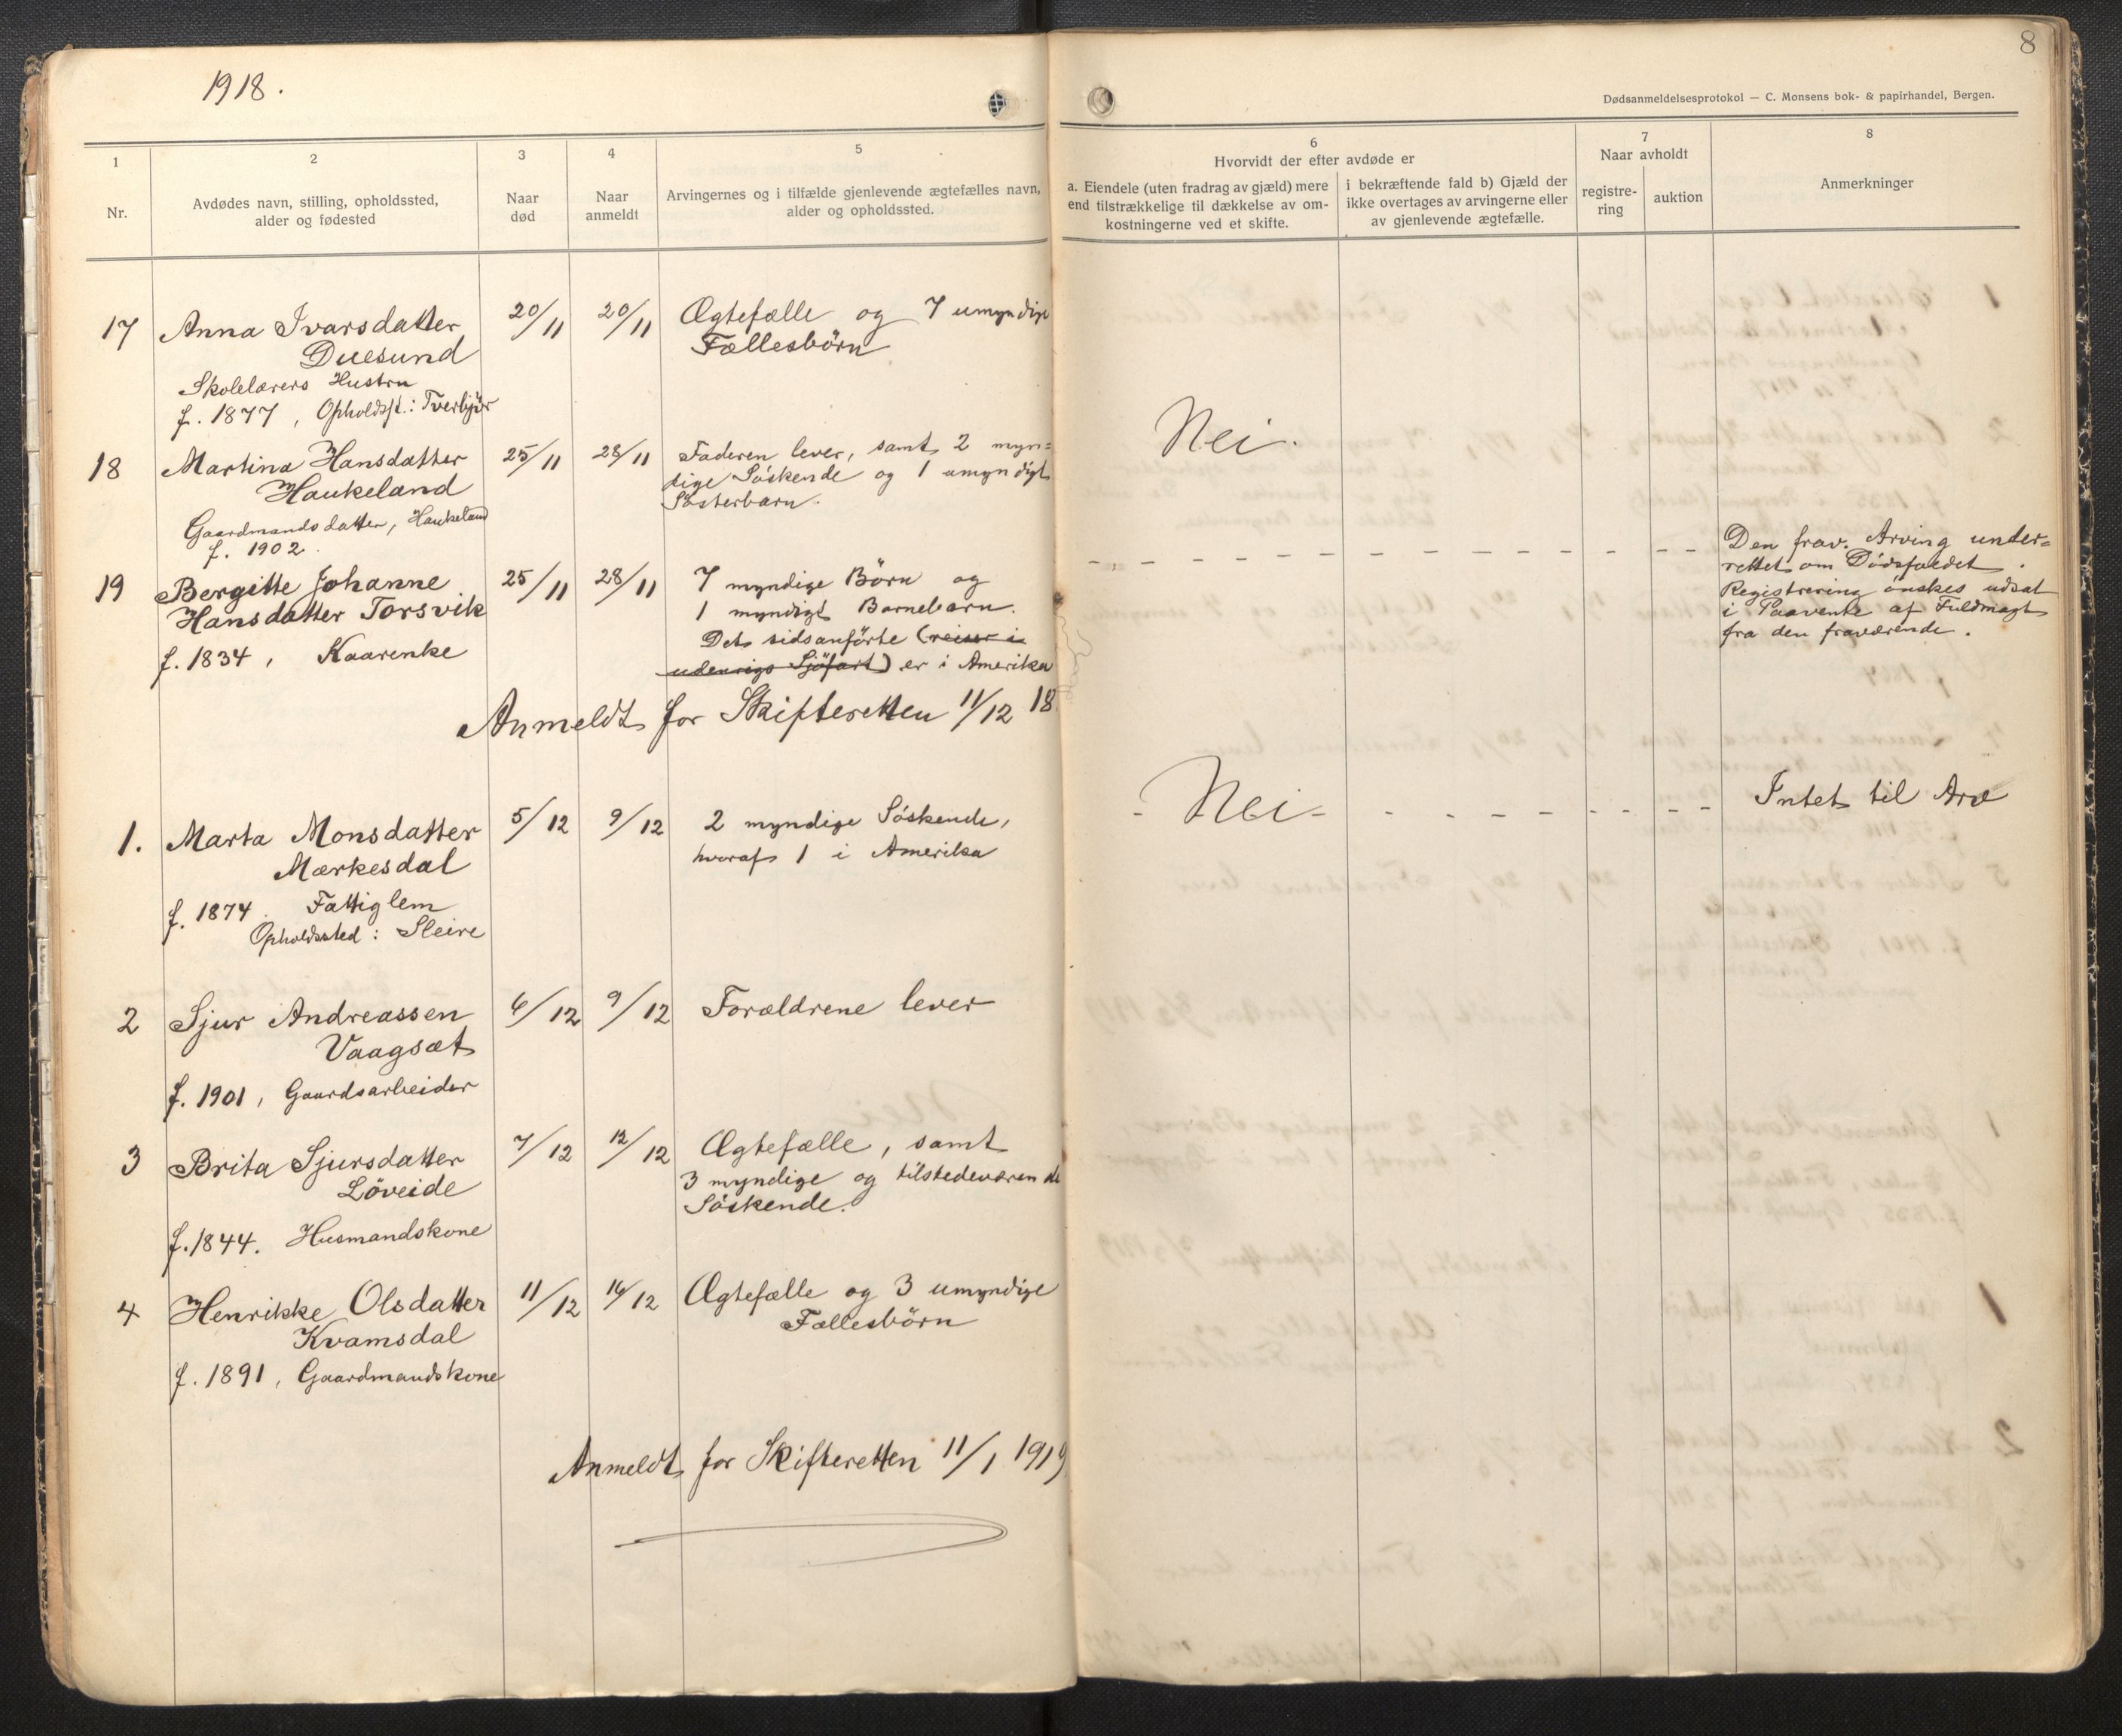 1918.
8
Dødsanmeldelsesprotokol — C. Monsens bok- & papirhandel, Bergen.
1
Nr.
2
Avdødes navn, stilling, opholdssted,
alder og fødested
3
Naar
død
4
Naar
anmeldt
5
Arvingernes og i tilfælde gjenlevende ægtefælles navn,
alder og opholdssted.
6
Hvorvidt der efter avdøde er
a. Eiendele (uten fradrag av gjæld) mere
end tilstrækkelige til dækkelse av om-
kostningerne ved et skifte.
i bekræftende fald b) Gjæld der
ikke overtages av arvingerne eller
av gjenlevende ægtefælle.
7
Naar avholdt
registre-
ring
auktion
8
Anmerkninger
17 Anna Ivarsdatter 20/11 20/11 Ægtefælle og 7 umyndige
Duesund Fællesbörn
Skolelærers Hustru
f. 1877, Opholdsst.:
Nei.
18 Martina Hansdatter 25/11 28/11 Faderen lever, samt 2 myn=
Haukeland dige Söskende og 1 umyndigt
Sösterbarn.
Gaardmandsdatter, Haukeland
f. 1902.
19 Bergitte Johanne 25/11 28/11 7 myndige Börn og
Hansdatter Torsvik 1 myndigt Barnebarn.
f. 1834, Kaarenke Det sidsanförte (reiser i
udenrigs Sjöfart) er i Amerika
Den frav. Arving under=
rettet om Dödsfaldet.
Registrering önskes udsat
i Paavente af Fuldmagt
fra den fraværende.
Anmeldt for Skifteretten 11/12 18
1. Marta Monsdatter 5/12 9/12 2 myndige Söskende,
Mærkesdal hvoraf 1 i Amerika
f. 1874. Fattiglem
Opholdssted: Sleire
- Nei - - - - - - - - Intet til Arv
2 Sjur Andreassen 6/12 9/12 Forældrene lever
Vaagsæt
f. 1901, Gaardsarbeider
3 Brita Sjursdatter 7/12 12/12 Ægtefælle, samt
Löveide 3 myndige og tilstedeværende
Söskende.
f. 1844. Husmandskone
4 Henrikke Olsdatter 11/12 16/12 Ægtefælle og 3 umyndige
Kvamsdal Fællesbörn
f. 1891, Gaardmandskone
Anmeldt for Skifteretten 11/1 1919